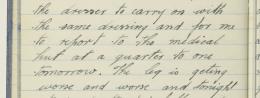 the dresser to carry on with
the same dressing and for me
to report to the medical
hut at a quarter to one
tomorrow. The leg is geting
worse and worse and tonight